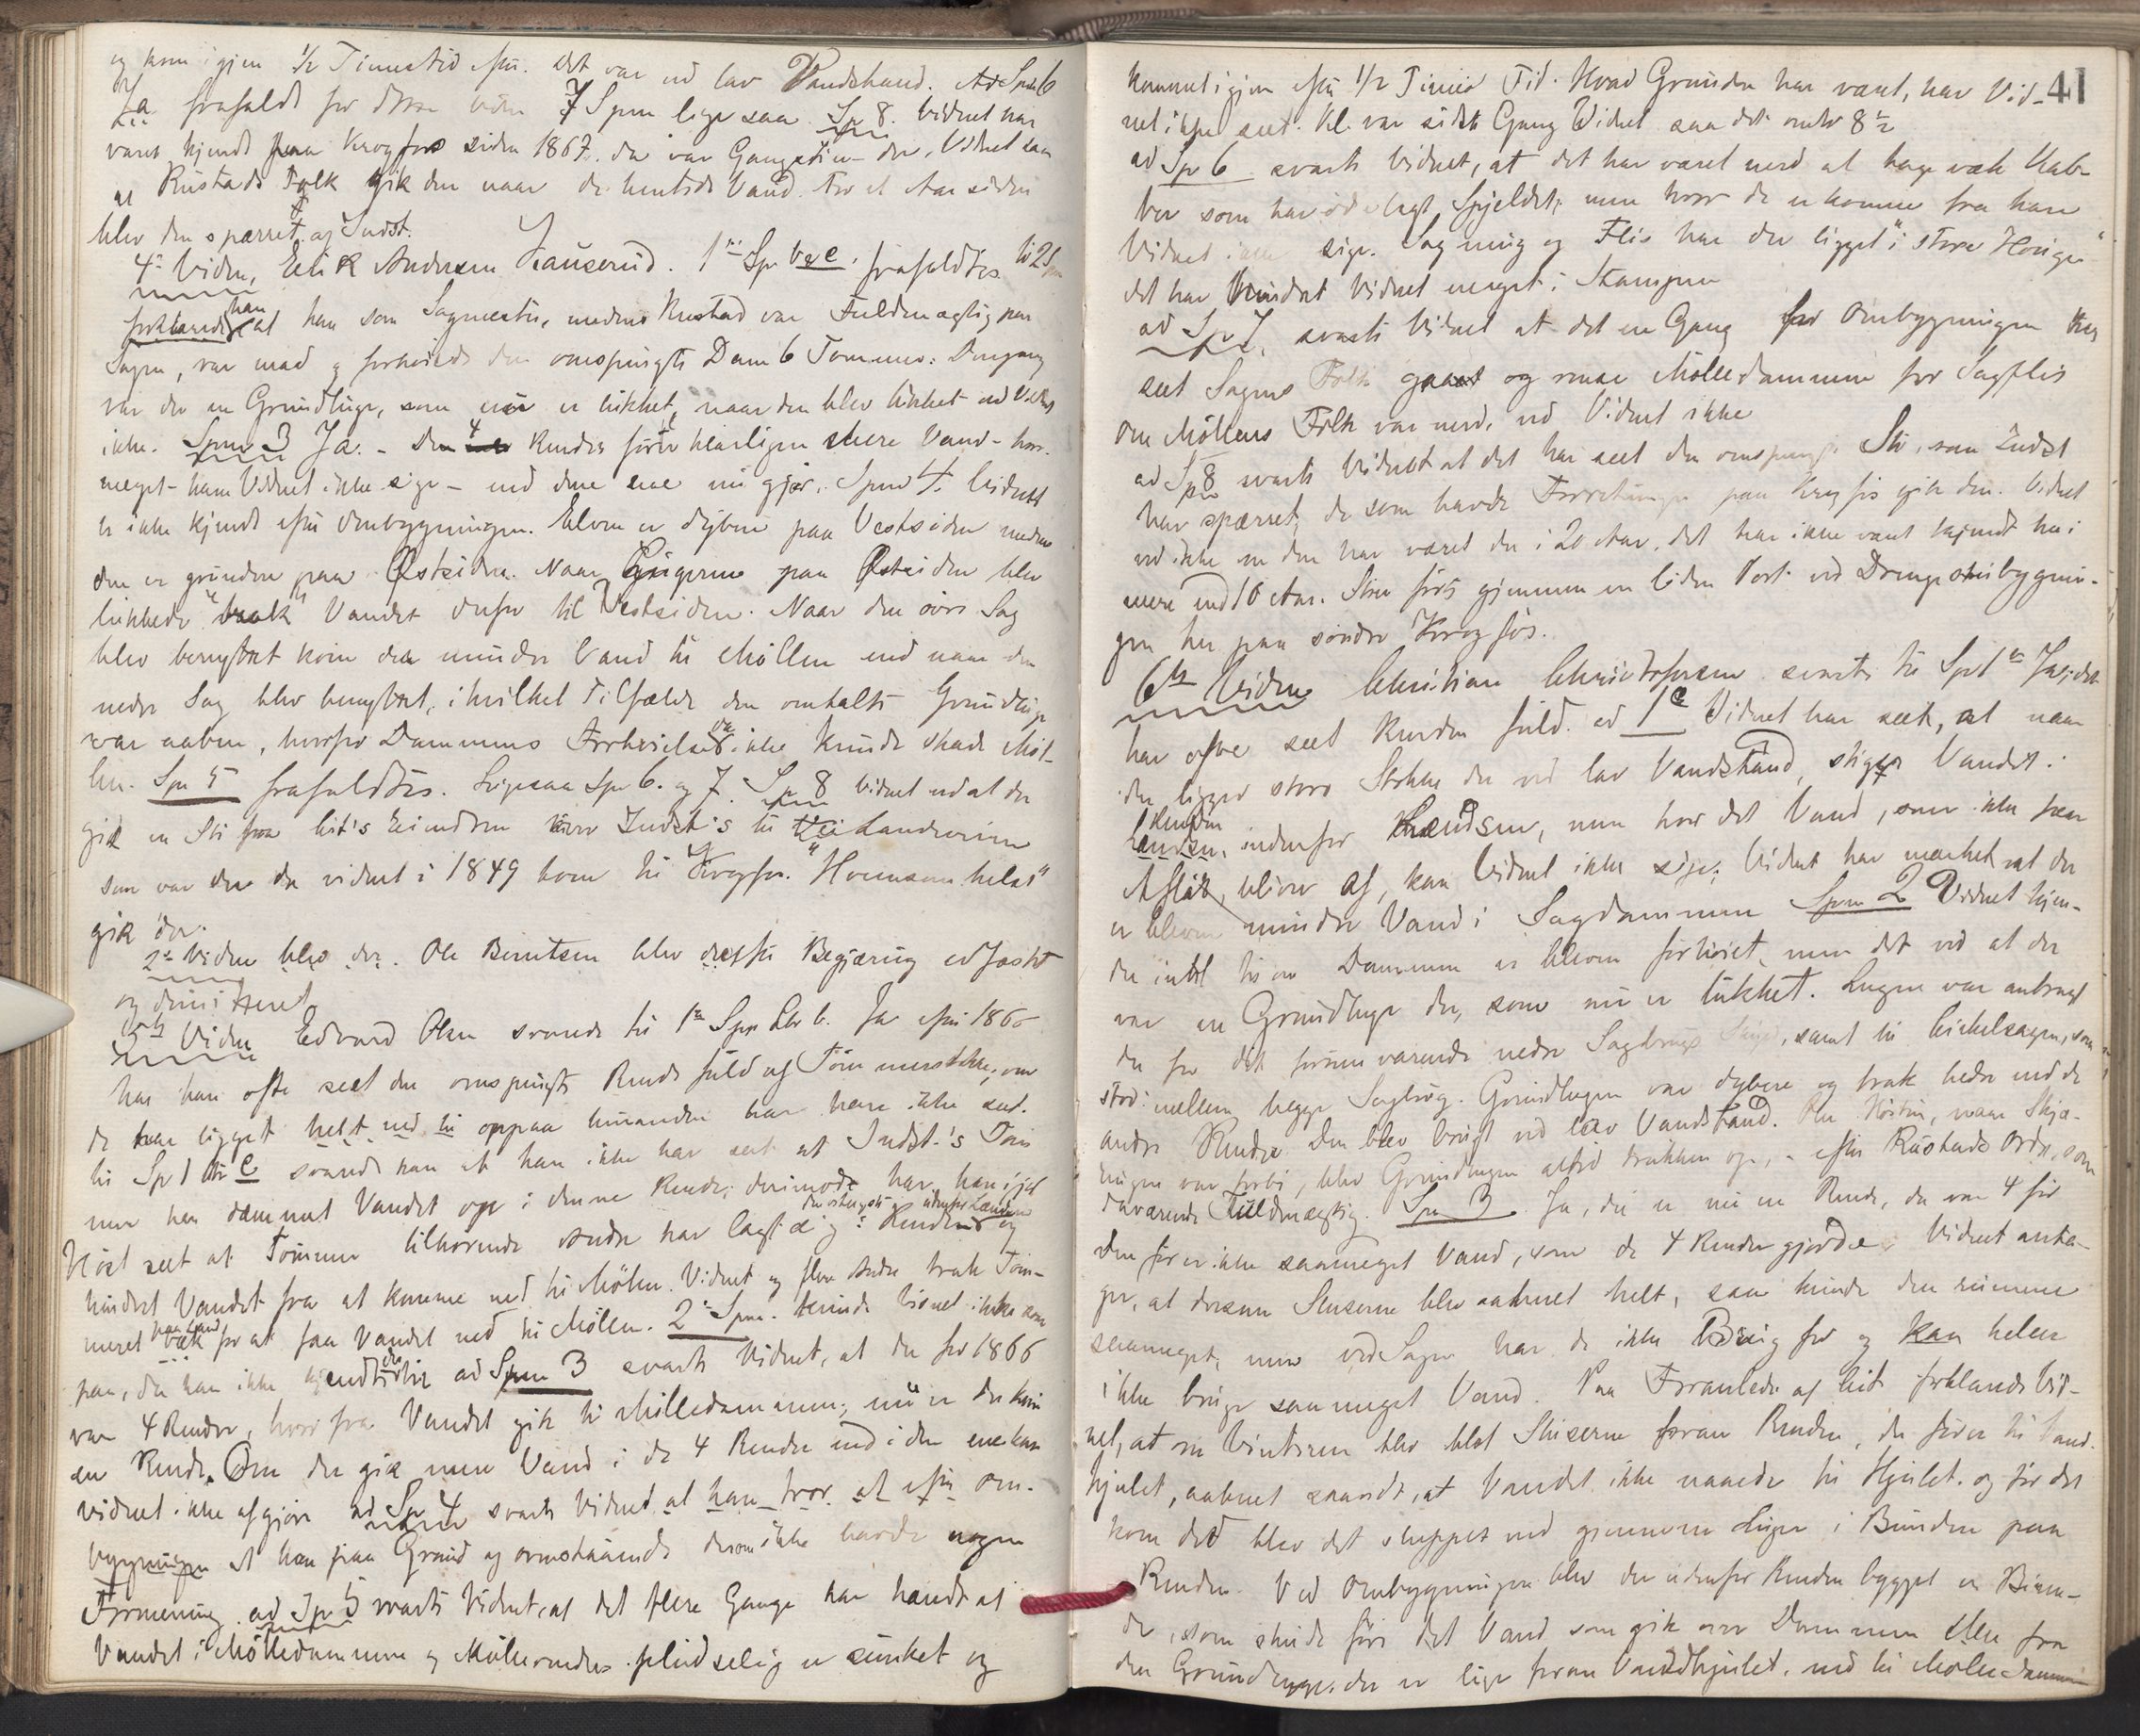 og kom igjen 1/2 Timestid efter. Det var ved lav Vandstand. Ad Spm 6
Ja frafaldt for dette Vidne 7 Spm ligesaa Sp 8. Vidnet har
været kjendt paa Krogfos siden 1867. da var Gangstien der, Vidnet saa
at Rustads Folk gik der naar de hentede Vand. For et Aar siden
blev den spærret af Indst.
4de Vidne, Erik Andersen Hauserud. 1ste Sp b & c frafaldtes. til 2 Spm
forklarede han at han som Sagmester, medens Rustad var Fuldmægtig paa
Sagen, var med og forhøiede den omspurgte Dam 6 Tommer. Dengang
var der en Grundluge, som nu er lukket, naar den blev lukket ved Vidnet
ikke. Spm 3 Ja. - De 4 Render førte klarligen mere Vand - hvor
meget - kan Vidnet ikke sige - end den ene nu gjør. Spm 4. Vidnet
er ikke kjendt efter Ombygningen. Elven er dybere paa Vestsiden medens
den er grundere paa Østsiden. Naar Lugerne paa Østsiden blev
lukkede "trak" Vandet derfor til Vestsiden. Naar den øvre Sag
blev benyttet kom der mindre Vand til Møllen end naar den
nedre Sag blev benyttet, i hvilket Tilfælde den omtalte Grundluge
var aaben, hvorfor Dammens Forhøielse da ikke kunde skade Møl-
len. Spm 5 frafaldtes. Ligesaa Spm 6. og 7. Sp 8 Vidnet ved at der
gik en Sti fra Cit's Eiendom over Indst's til Landeveien
som var der da vidnet i 1849 kom til Krogfos. "Hvemsomhelst"
gik der.
2det Vidne blev der. Ole Berntsen blev derefter Begjæring edfæstet
og dimitteret
5te Vidne Edvard Olsen svarede til 1ste Spm Litr b. Ja efter 1866
har han ofte seet den omspurgte Rende fuld af Tømmerstokke; om
de har ligget helt ned til oppaa hinanden har han ikke seet.
til Sp 1 litr c svarede han at han ikke har seet at Indst.'s Tøm-
mer har dæmmet Vandet op i denne Rende; derimod har han ifjor
Høst seet at Tømmer tilhørende Andre har lagt sig i Renden og
hindret Vandet fra at komme ned til Møllen. Vidnet og flere Andre trak Tøm-
meret væk paa Land for at faa Vandet ned til Møllen. 2det Spm. kunde Vidnet ikke svare
paa, da han ikke er kjendt der ad Spm 3 svarte Vidnet, at der før 1866
var 4 Render, hvorfra Vandet gik til Mølledammen; nu er der kun
en Rende. Om der gik mere Vand i de 4 Render end i den ene kan
vidnet ikke afgjøre ad Sp 4 svarte Vidnet at han tror at efter Om-
bygningen at han paa Grund af ovenstaaende derom ikke havde nogen
Formening. ad Sp 5 svarte Vidnet, at det flere Gange har hændt at
Vandet i Mølledammen og Møllerenden pludselig er sunket og
41
kommet igjen efter 1/2 Times Tid. Hvad Grunden har været, har Vid-
net ikke seet. Kl. var sidste Gang Vidnet saa det omtr 8 1/2
ad Sp 6 svarte Vidnet, at det har været med at tage væk Kab-
ber som har ødelagt Spjeldet; men hvor de er komne fra kan
Vidnet ikke sige. Sagmug og Flis har der ligget "i store Houger"
det har hindret Vidnet meget i Stampen
ad Sp 7. svarte Vidnet at det en Gang før Ombygningen har
seet Sagens Folk gaaet og rense Mølledammen for Sagflis
Om Møllens Folk var med, ved Vidnet ikke
ad Sp 8 svarte Vidnet at det har seet den omspurgte Sti, som Indst
har spærret; de som havde Forretninger paa Krogfos gik den. Vidnet
ved ikke om den har været der i 20 Aar. det har ikke været kjendt her i
mere end 10 Aar. Stien førte gjennem en liden Port ved Drengestubygnin-
gen her paa søndre Krogfos.
6te Vidne Christian Christophersen svarte til Sp 1 b Ja, det
har ofte seet Renden fuld. ad 1 c Vidnet har seet, at naar
der ligger store Stokke der ved lav Vandstand, stiger Vandet i
Renden indenfor Lændsen, men hvor det Vand, som ikke faar
Afløb, bliver af, kan Vidnet ikke sige; Vidnet har mærket at der
er bleven mindre Vand i Sagdammen Spm 2 Vidnet kjen-
der intet til om Dammen er bleven forhøiet, men det ved at der
var en Grundluge der, som nu er lukket. Lugen var anbragt
der for det forrenværende nedre Sagbrugs Skyld, samt til Cirkelsagen, som
stod imellem begge Sagbrug. Grundlugen var dybere og trak bedre end de
andre Render Den blev brugt ved lav Vandstand. Om Høsten, naar Skjæ-
ringen var forbi, blev Grundlugen altid trukken op, - efter Rustads Ordre, som
daværende Fuldmægtig. Spm 3 Ja, der er nu en Rende, der var 4 før
Den fører ikke saameget Vand, som de 4 Render gjorde. Vidnet anta-
ger, at dersom Sluserne blev aabnet helt, saa kunde den rumme
saameget, men ved Sagen har de ikke Brug for og kan heller
ikke bruge saameget Vand. Paa Foranledn af Cit forklarede Vid-
net, at om Vinteren blev blot Sluserne foran Renden, der fører til Vand-
hjulet, aabnet saavidt, at Vandet ikke naaede til Hjulet. og før det
kom did blev det sluppet ned gjennem Luger i Bunden paa
Renden. Ved Ombygningen blev der udenfor Renden bygget en Biren-
de, som skulde føre det Vand som gik over Dammen eller fra
den Grundluge, der er lige foran Vandhjulet, ned til Mølledammen